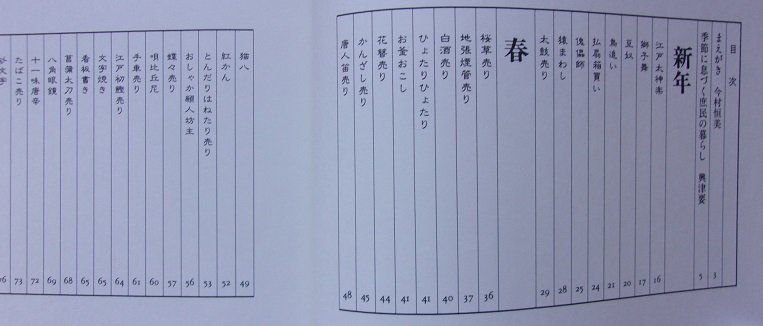 目次
まえがき 今村恒美 3
季節に息づく庶民の暮らし 興津要 5
新年
江戸太神楽 16
獅子舞 17
豆奴 20
鳥追い 21
払扇箱買い 24
傀儡師 25
猿まわし 28
太鼓売り 29
春
桜草売り 36
地張煙管売り 37
白酒売り 40
ひょたりひょたり 41
お釜おこし 41
花簪売り 44
かんざし売り 45
唐人笛売り 48
猫八 49
紅かん 52
とんだりはねたり売り 53
おしゃか願人坊主 56
蝶々売り 57
唄比丘尼 60
手車売り 61
江戸初鰹売り 64
文字焼き 65
看板書き 65
菖蒲太刀売り 68
八角眼鏡 69
十一味唐辛 72
たばこ売り 73
文字